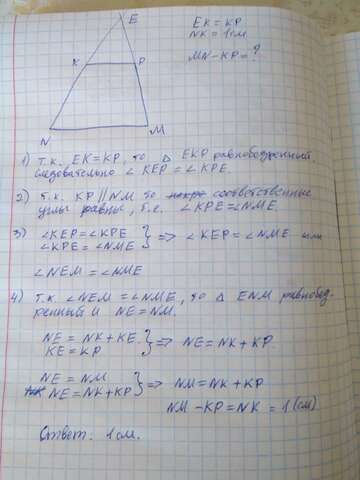 E
K
P
N
M
EK = KP
NK = 1 см
MN - KP = ?
1) т.к. EK = KP, то △ EKP равнобедренный,
следовательно ∠ KEP = ∠ KPE.
2) т.к. KP || NM то соответственные
углы равны, т.е. ∠ KPE = ∠ NME
3) ∠KEP = ∠ KPE
∠KPE = ∠ NME } => ∠ KEP = ∠ NME или
∠ NEM = ∠NME
4) т.к ∠ NEM = ∠NME, то △ ENM равнобед-
ренный и NE = NM.
NE = NK + KE.
KE = KP } => NE = NK + KP.
NE = NM
NE = NK + KP } => NM = NK + KP
NM - KP = NK = 1 (см)
Ответ: 1 см.